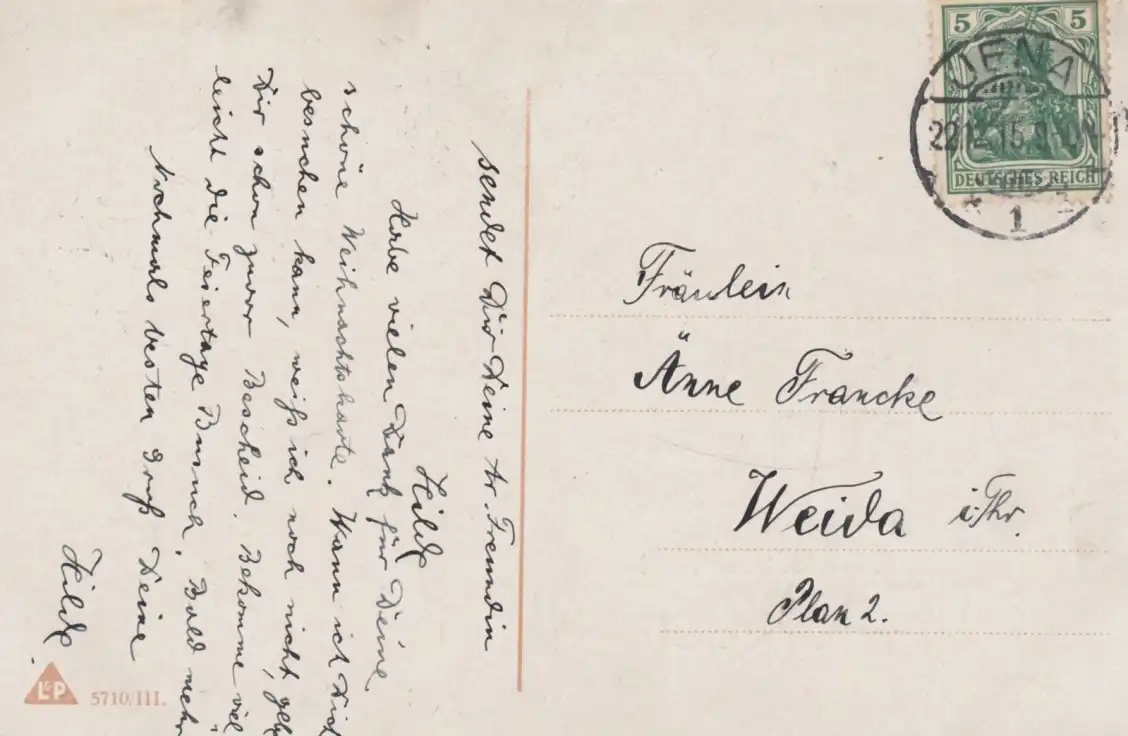 sendet Dir Deine tr. Freundin
Hilde
Habe vielen Dank für Deine
schöne Weihnachtskarte. Wann ich Dich
besuchen kann, weiß ich noch nicht, geb
Dir schon zuvor Bescheid. Bekomme viel
leicht die Feiertage Besuch. Bald mehr
Nochmals besten Gruß Deine
Hilde.
5 5
DEUTSCHES REICH
JENA
1
Fräulein
Änne Francke
Weida i. Thr.
Plan 2.
L&P 5710/III.